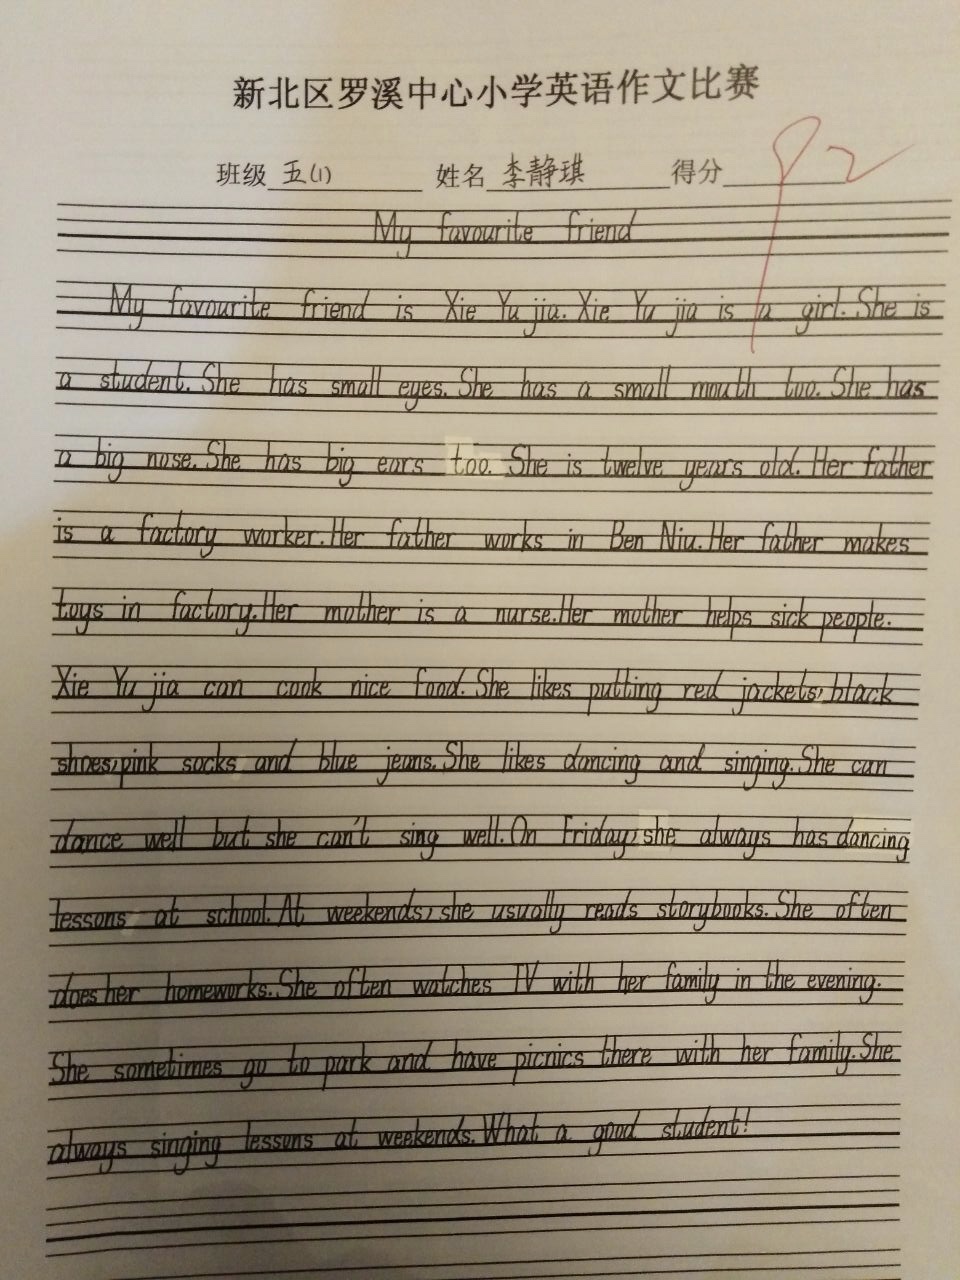 新北区罗溪中心小学英语作文比赛
班级 五(1) 姓名 李静琪 得分 92
My favourite friend
My favourite friend is Xie Yu jia. Xie Yu jia is a girl. She is
a student. She has small eyes. She has a small mouth too. She has
a big nose. She has big ears too. She is twelve years old. Her father
is a factory worker. Her father works in Ben Niu. Her father makes
toys in factory. Her mother is a nurse. Her mother helps sick people.
Xie Yu jia can cook nice food. She likes putting red jackets, black
shoes, pink socks, and blue jeans. She likes dancing and singing. She can
dance well but she can't sing well. On Friday, she always has dancing
lessons, at school. At weekends, she usually reads storybooks. She often
does her homeworks. She often watches TV with her family in the evening.
She sometimes go to park and have picnics there with her family. She
always singing lessons at weekends. What a good student!